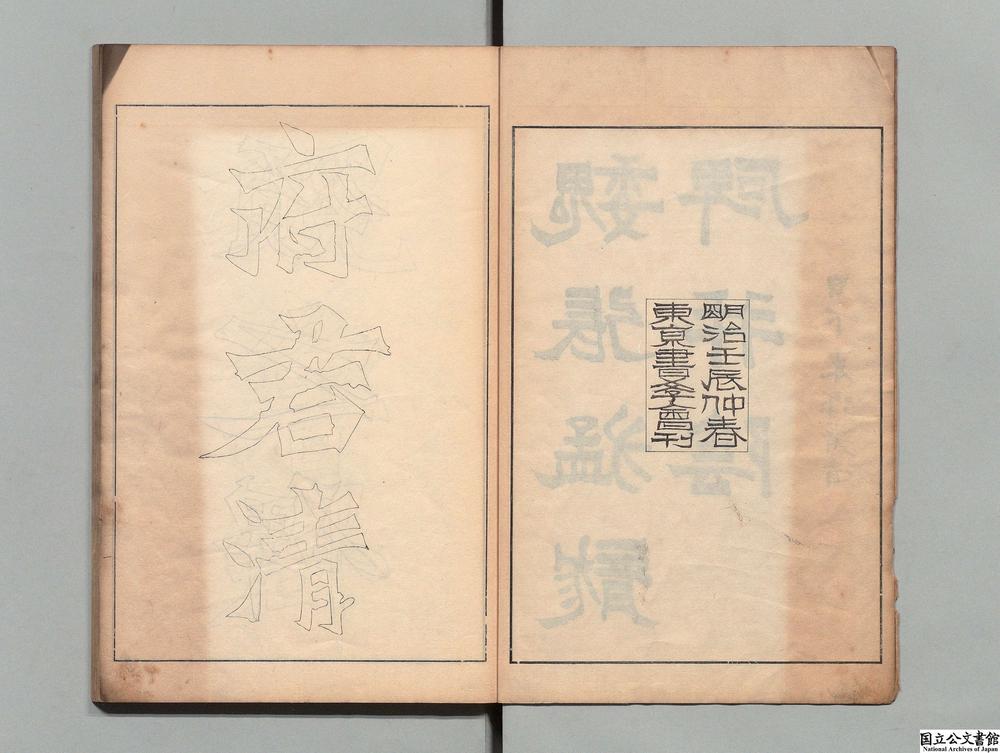 明治壬辰仲春
東京書学會刊
府君清
国立公文書館
National Archives of Japan